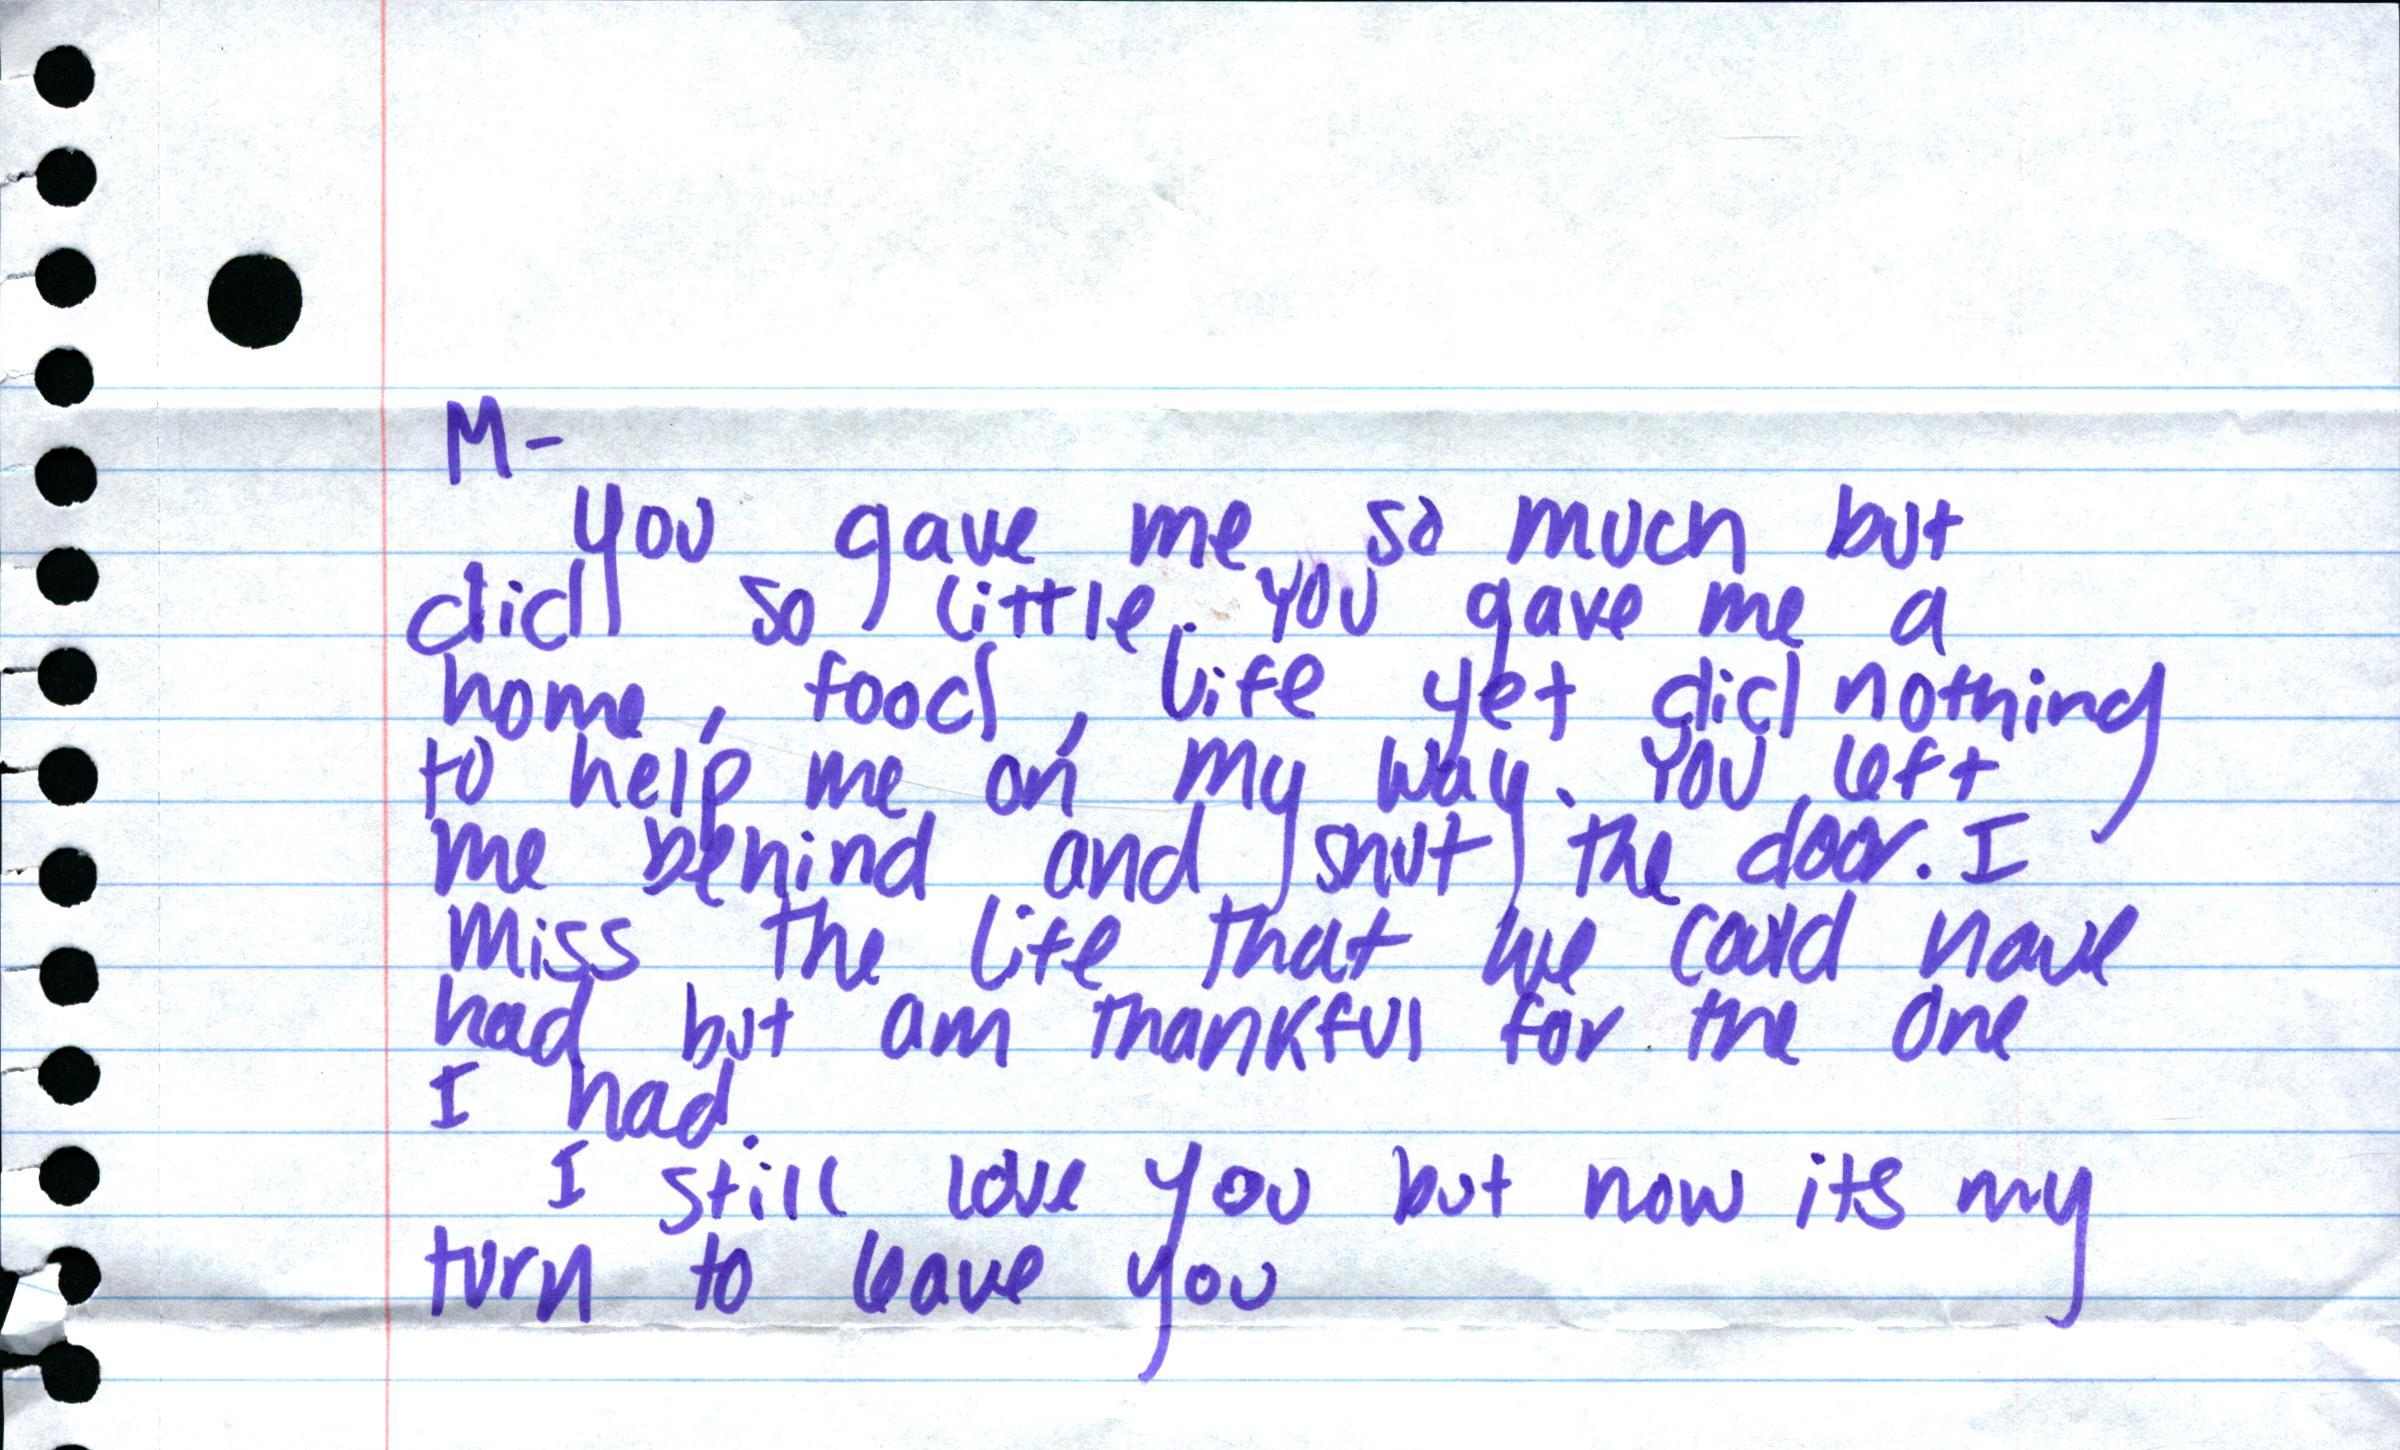 M-
you gave me so much but
did so little. You gave me a
home, food, life yet did nothing
to help me on my way. You left
me behind and shut the door. I
miss the life that we could have
had but am thankful for the one
I had.
I still love you but now its my
turn to leave you